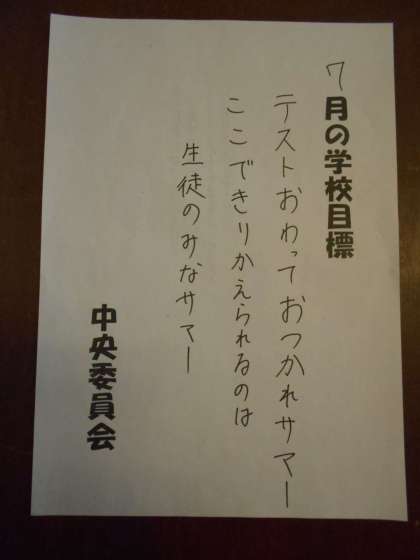 7月の学校目標
テストおわっておつかれサマー
ここできりかえられるのは
生徒のみなサマー
中央委員会